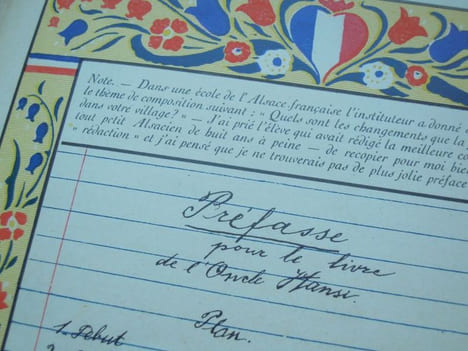 Note. — Dans une école de l'Alsace française l'instituteur a donné
le thème de composition suivant : "Quels sont les changements que la
dans votre village?" — J'ai prié l'élève qui avait rédigé la meilleure
tout petit Alsacien de huit ans à peine — de recopier pour moi
rédaction" et j'ai pensé que je ne trouverais pas de plus jolie préface
Préfasse
pour le livre
de l'Oncle Hansi.
Plan.
1. Début